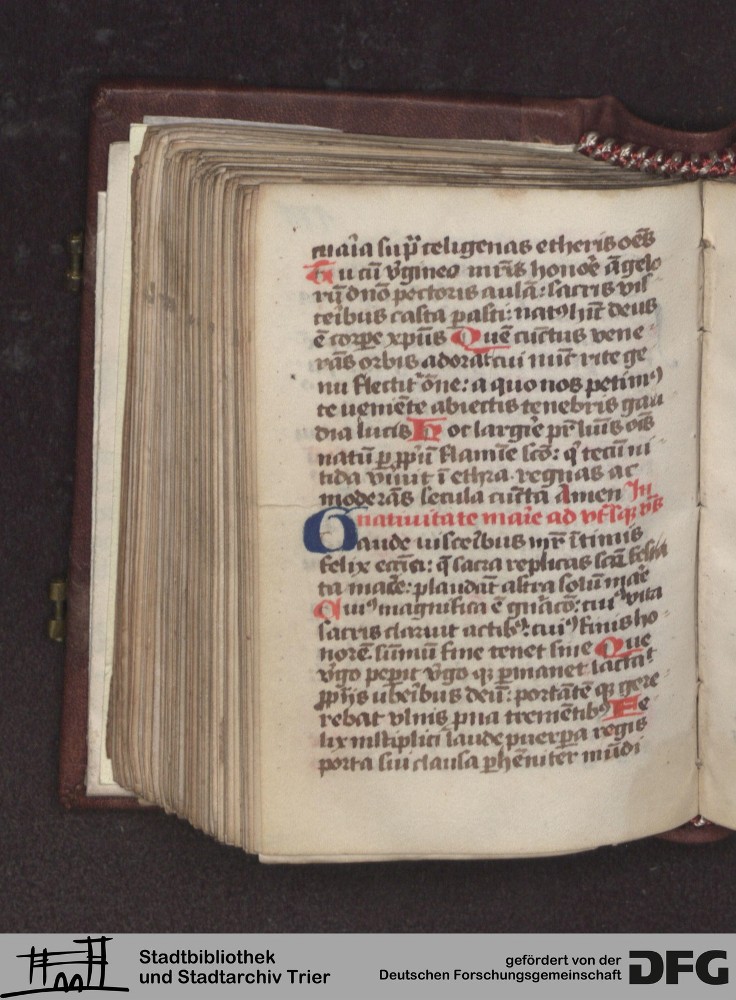 cuaīa sup̄ celigenas etheris oēs
Tu cū v̄gineo mr̄is honoē āgelo
rū dn̄o pectoris aulā: sacris vis
ceribus casta pasti: natꝰ hīc deus
ē corpe xpīis Quē cūctus vene
rās orbis adorat cui nūc rite ge
nu flectit ōne: a quo nos petimꝰ
te ueniēte abiectis tenebris gau
dia lucis Hoc largire pr̄ lūīs oīs
natū ꝑ ꝓpiū flamīe scō: q̄ tecū ni
tida viuit ī ethra regnas ac
moderās secula cūcta Amen In
natiuitate marīe ad vr̄sꝗ vēs
Gaude uisceribus mr̄ ītimis
felix ecclīa: q̄ sacra replicas scā festa
ta marīe: plaudāt astra solū mare
Cuiꝰ magnifica ē gn̄acō: cuiꝰ vita
sacris claruit actibꝰ: cuiꝰ finis ho
norē sūmū fine tenet sine Que
v̄go pepit v̄go qꝫ ꝑmanet lactat
ꝓpījs uberibus deū: portātē qꝫ gere
rebat vlnis pna tremētibꝰ Fe
lix mltiplici laude puerpa regis
porta sui clausa ꝑhēniter mūdi
Stadtbibliothek
und Stadtarchiv Trier
gefördert von der
Deutschen Forschungsgemeinschaft
DFG